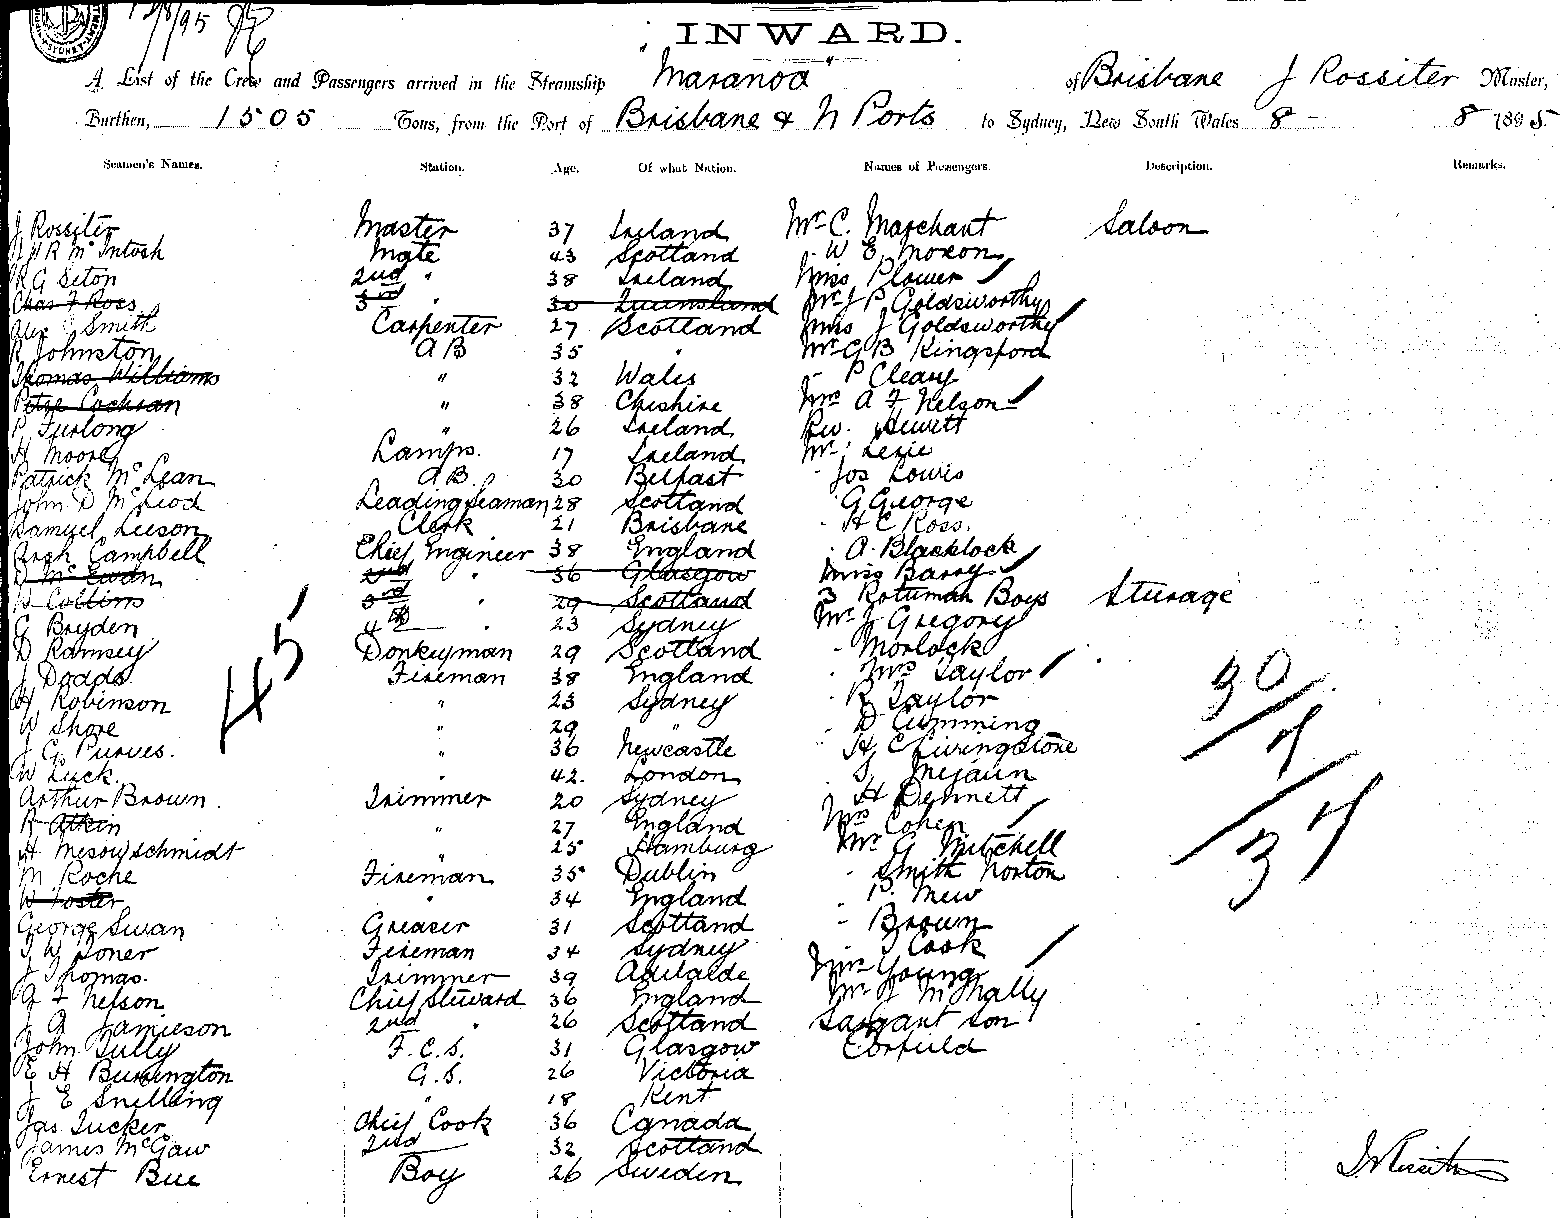 12/8/95
INWARD.
A List of the Crew and Passengers arrived in the Steamship "Maranoa" of Brisbane J Rossiter Master,
Burthen, 1505 Tons, from the Port of Brisbane & N Ports to Sydney, New South Wales 8 - 8 1895
Seamen's Names. Station. Age. Of what Nation. Names of Passengers. Description. Remarks.
J Rossiter Master 37 Ireland Mr C. Marchant Saloon
R McIntosh Mate 43 Scotland " W E Moxon
R G Seton 2nd " 38 Ireland Miss Plower
Chas F Ross 3rd " 30 Queensland Mr J P Goldsworthy
Alex J Smith Carpenter 27 Scotland Mrs J Goldsworthy
R Johnston A B 35 " Mr G B Kingsford
Thomas Williams " 32 Wales " P Cleary
Peter Cochran " 38 Cheshire Mrs A F Nelson
P Furlong " 26 Ireland Rev. Hewett
H Moore Lamps. 17 Ireland Mr Lexie
Patrick McLean A B. 30 Belfast " Jos Lowis
John D McLeod Leading Seaman 28 Scotland G George
Samuel Leeson Clerk 21 Brisbane " H C Ross.
Hugh Campbell Chief Engineer 38 England " A. Blacklock
D McEwan 2nd " 36 Glasgow Miss Barry
Collins 3rd " 29 Scotland 3 Rotumah Boys Sturage
G Bryden 4th " 23 Sydney Mr J Gregory
D Ramsey Donkeyman 29 Scotland " Morlock
J Dodds Fireman 38 England " Mrs Taylor
H Robinson " 23 Sydney " R Taylor
W Shore " 29 " " D Cumming
J G Purves. " 36 Newcastle " H C Livingstone
W Luck. " 42. London
Arthur Brown. Trimmer 20 Sydney " H Dennett
R Atkin " 27 England Mrs Cohen
H Mesowschmidt " 25 Hamburg Mr G Mitchell
M Roche Fireman 35 Dublin " Smith Norton
W Foster " 34 England " P. Mew
George Swan Greaser 31 Scotland " Brown
Toner Fireman 34 Sydney Cook
J Thomas. Trimmer 39 Adelaide Mrs Young
A F Nelson Chief Steward 36 England Mr J McNally
J A Jamieson 2nd " 26 Scotland Sargant Son
John Tully F.C.S. 31 Glasgow Corfield
E H Burrington G.S. 26 Victoria
J E Snelling " 18 Kent
Jas Tucker Chief Cook 36 Canada
James McGaw 2nd 32 Scotland
Ernest Bue Boy 26 Sweden
45
30
4
34